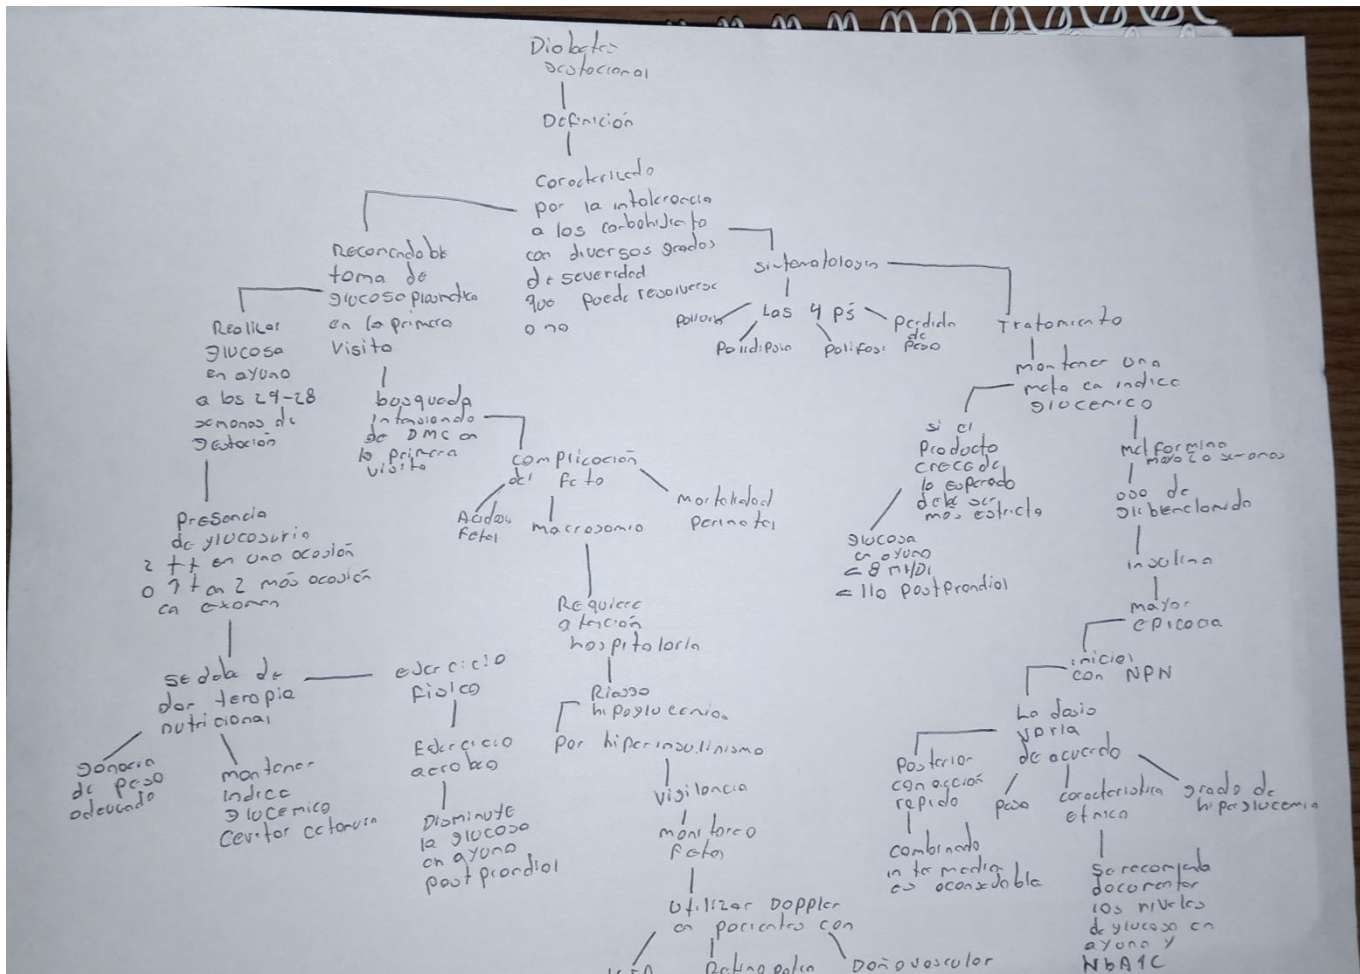 Diobetes
gestocional
Definición
Corocterizado
por la intolerancia
a los carbohidrato
con diversos grados
de severidad
que puede resolverse
o no
Recomendable
toma de
glucosa plasmática
en la primera
visita
Realizar
glucosa
en ayuno
a los 24-28
semanas de
gestación
Presencia
de glucosuria
2 ++ en una ocasión
o 1+ en 2 más ocasión
en examen
se debe de
dar terapia
nutricional
ganancia
de peso
adecuado
mantener
indice
glucemico
evitar cetonuria
ejercicio
fisico
Ejercicio
aerobico
Disminuye
la glucosa
en ayuno
postprandial
busqueda
intensionado
de DMG en
la primera
visita
complicación
del feto
Acidosis
fetal
macrosomio
mortalidad
perinatal
Requiere
atención
hospitalaria
Riesgo
hipoglucemia
por hiperinsulinismo
vigilancia
monitoreo
fetal
Utilizar Doppler
en pacientes con
Retinopatia
Daño vascular
sintomatologia
Las 4 ps
poliuria
Polidipsia
polifagi
perdida
de
peso
Tratamiento
mantener una
meta en indice
glucemico
si el
producto
crece de
lo esperado
debe ser
mas estricta
glucosa
en ayuno
< 110 postprandial
metformina
mayor 20 semanas
uso de
glibenclamida
insulina
mayor
eficacia
iniciar
con NPH
La dosis
varia
de acuerdo
peso
caracteristica
etnica
grado de
hiperglucemia
Posterior
con acción
rapido
combinado
intermedia
es aconsejable
se recomienda
documentar
los niveles
de glucosa en
ayuno y
HbA1C